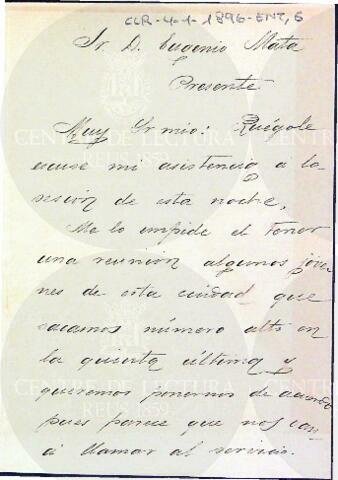 CLR-4-1-1896-ENT,6
Sr. D. Eugenio Mata
Presente
Muy Sr mio: Ruégole
escuse mi asistencia a la
sesión de esta noche,
Me lo impide el tener
una reunión algunos jóve
nes de esta ciudad que
sacamos número alto en
la quinta última y
queremos ponernos de acuerdo
pues parece que nos van
á llamar al servicio.
CENTRE DE LECTURA
REUS 1859